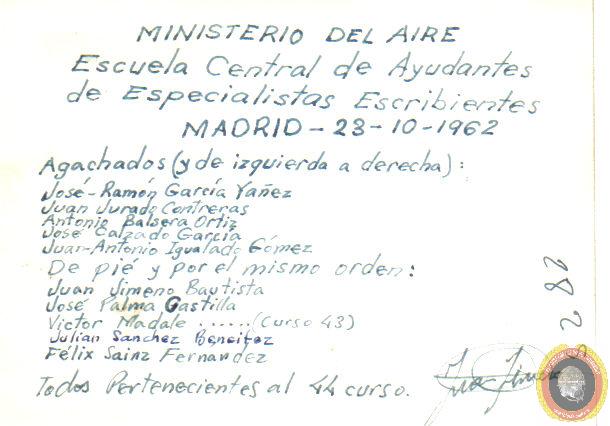 MINISTERIO DEL AIRE
Escuela Central de Ayudantes
de Especialistas Escribientes
MADRID - 23-10-1962
Agachados (y de izquierda a derecha):
José-Ramón García Yañez
Juan Jurado Contreras
Antonio Balsera Ortiz
José Calzado García
Juan-Antonio Igualado Gómez
De pié y por el mismo orden:
Juan Jimeno Bautista
José Palma Gastilla
Victor Madale ...... (Curso 43)
Julian Sanchez Beneitez
Félix Sainz Fernandez
Todos Pertenecientes al 44 curso.
282